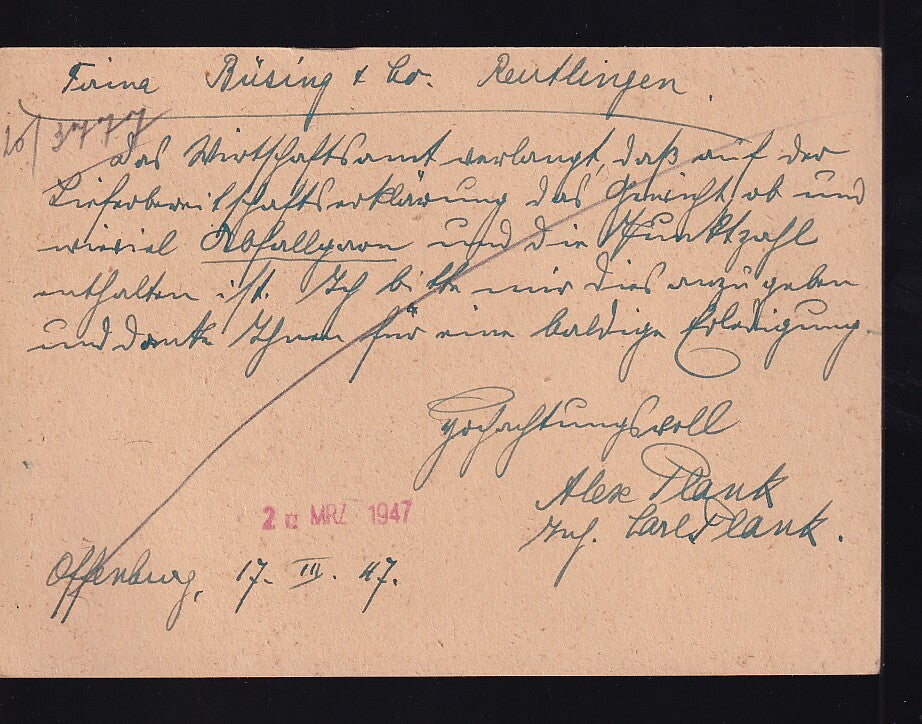 Firma Büsing & Co. Reutlingen.
20/3777
Das Wirtschaftsamt verlangt, daß auf der
Lieferbereitschaftserklärung das Gewicht, ob und
wieviel Abfallgarn und die Punktzahl
enthalten ist. Ich bitte mir dies anzugeben
und danke Ihnen für eine baldige Erledigung.
Hochachtungsvoll
Alex Plank
Inh. Carl Plank.
MRZ. 1947
Offenburg, 17. III. 47.